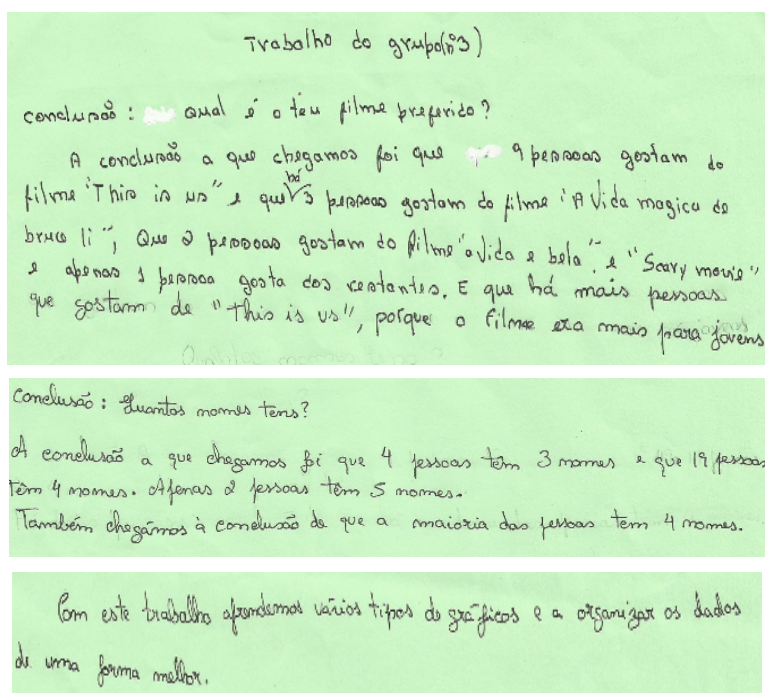 Trabalho do grupo(nº3)
Conclusão: Qual é o teu filme preferido?
A conclusão a que chegamos foi que 9 pessoas gostam do
filme "This is us" e que há 3 pessoas gostam do filme "A Vida magica de
bruce li", Que 2 pessoas gostam do filme "a vida e bela", e "Scary movie"
e apenas 1 pessoa gosta dos restantes. E que há mais pessoas
que gostam de "This is us", porque o filme era mais para jovens
Conclusão: Quantos nomes tens?
A conclusão a que chegamos foi que 4 pessoas têm 3 nomes e que 19 pessoas
têm 4 nomes. Apenas 2 pessoas têm 5 nomes.
Também chegámos à conclusão de que a maioria das pessoas tem 4 nomes.
Com este trabalho aprendemos vários tipos de gráficos e a organizar os dados
de uma forma melhor.